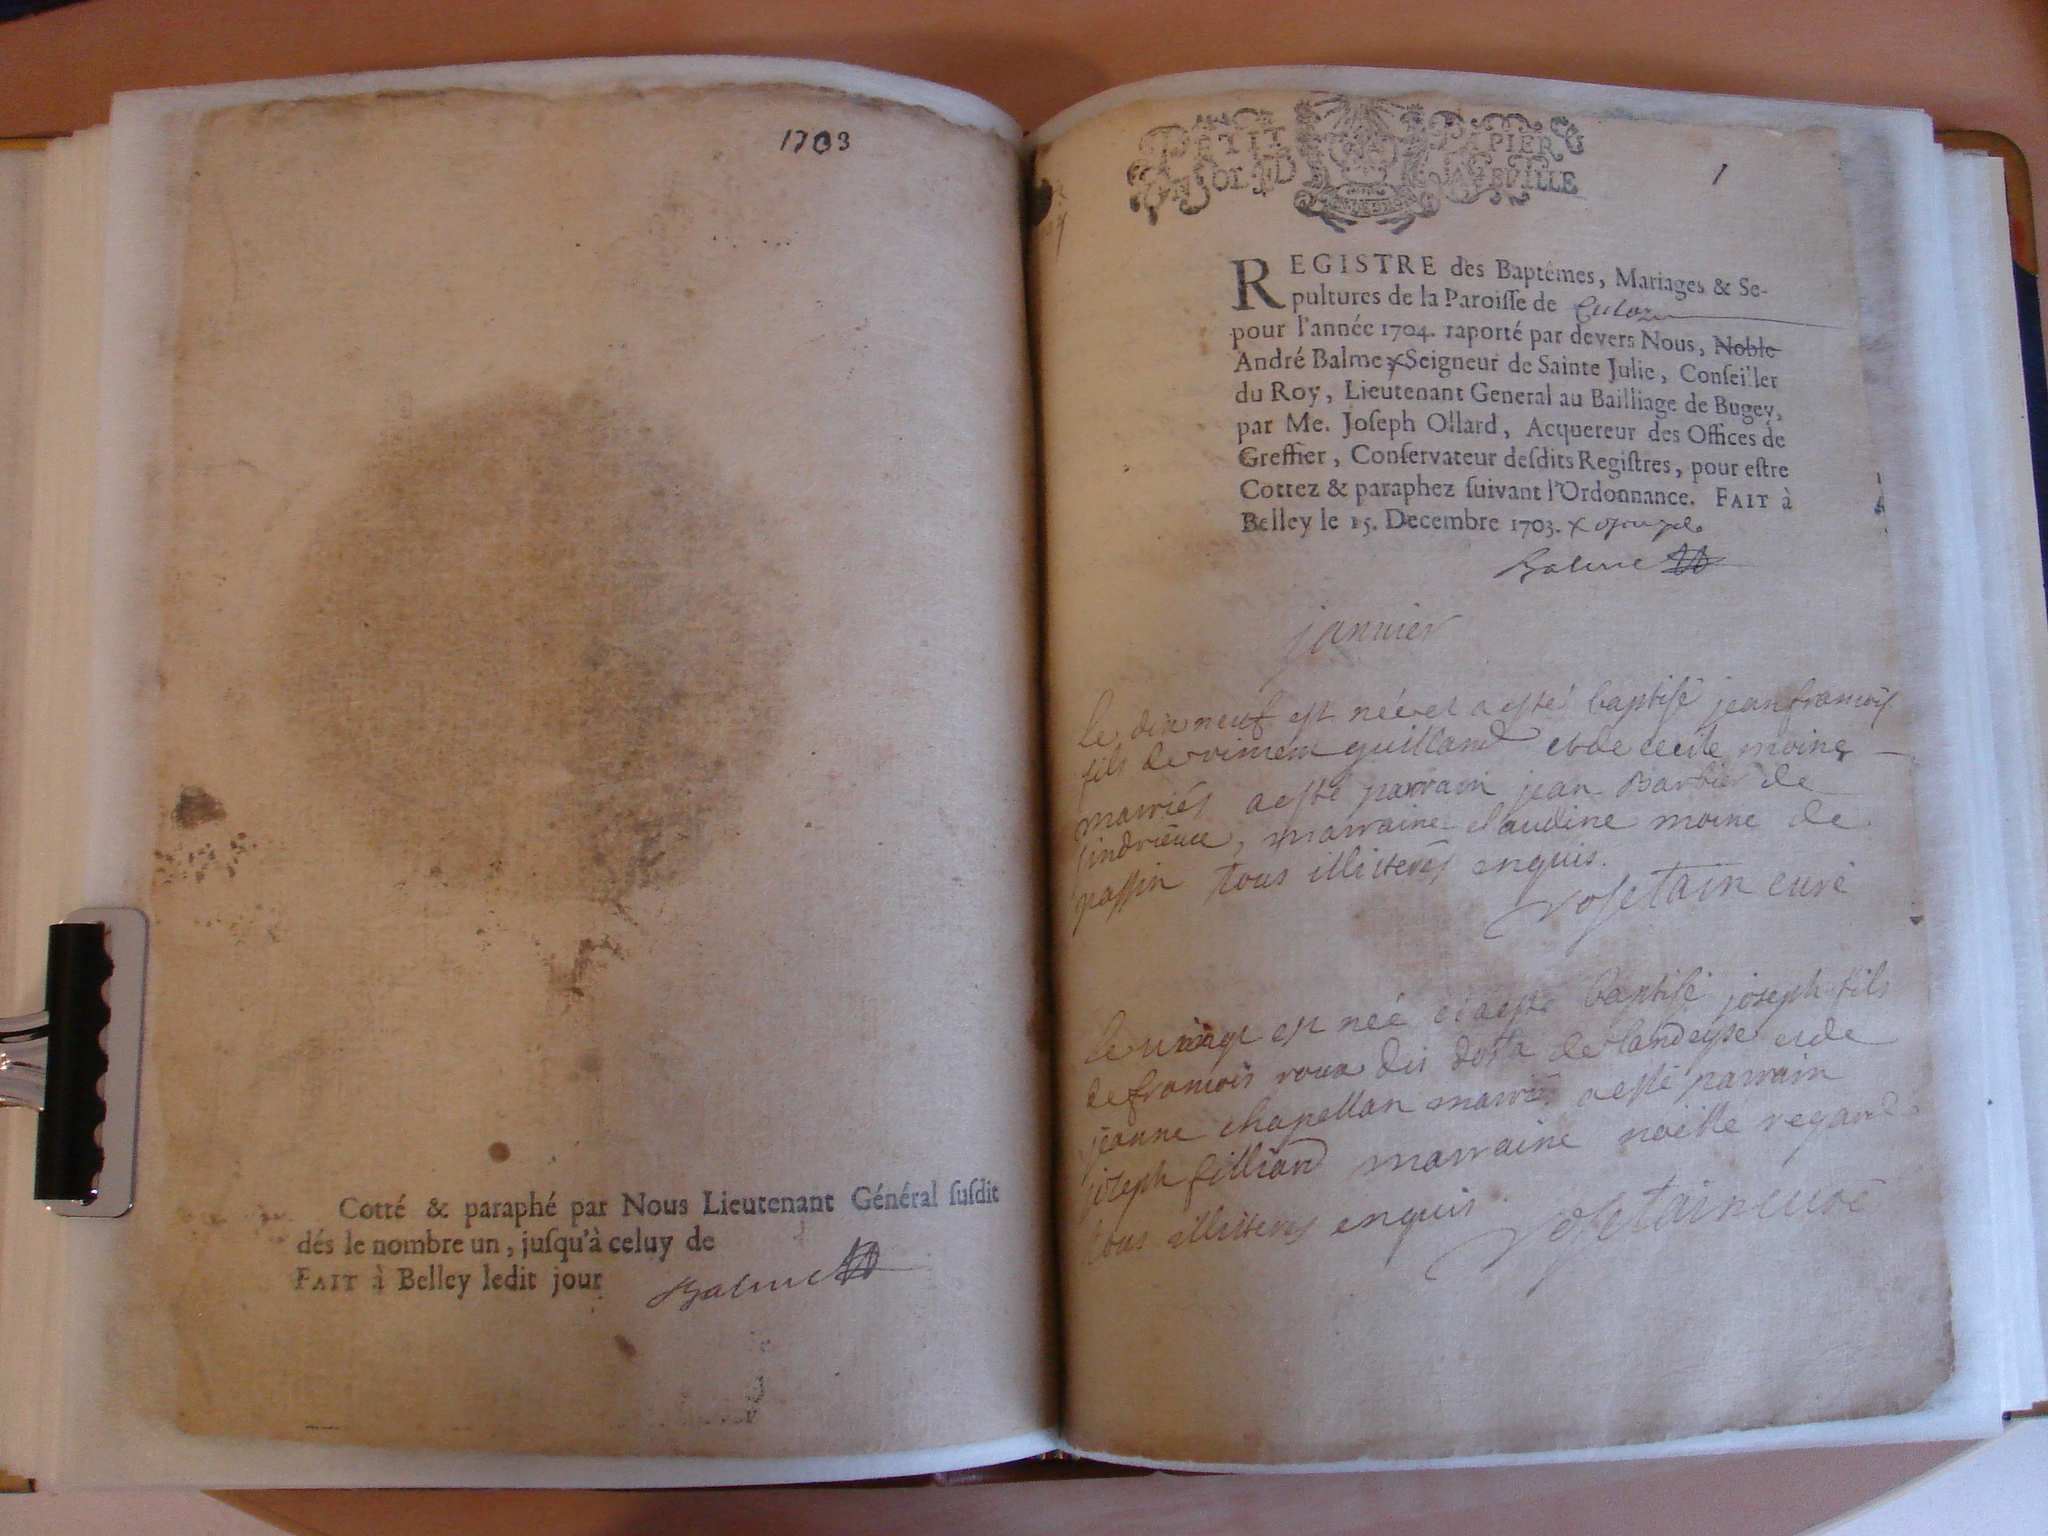 1703
Cotté & paraphé par Nous Lieutenant Général ſuſdit
dés le nombre un, juſqu'à celuy de
FAIT à Belley ledit jour
Balme
PETIT PAPIER
1
REGISTRE des Baptêmes, Mariages & Se-
pultures de la Paroiſſe de Culoz
pour l'année 1704. raporté par devers Nous, Noble
André Balme Seigneur de Sainte Julie, Conſeiller
du Roy, Lieutenant General au Bailliage de Bugey,
par Me. Joſeph Ollard, Acquereur des Offices de
Greffier, Conſervateur deſdits Regiſtres, pour eſtre
Cottez & paraphez ſuivant l'Ordonnance. FAIT à
Belley le 15. Decembre 1703.
Balme
janvier
le dix neuf est néé et a esté baptisé jean francois
fils de guilland et de cecile moine
mariés a esté parrain jean Barbier de
marraine claudine moine de
passin tous illitterés enquis.
rosetain curé
le vingt est néé et a esté baptisé joseph fils
de francois roux dit de landeyse et de
jeanne chapellan mariés a esté parrain
joseph filliard marraine noelle regard
tous illitterés enquis
rosetain curé